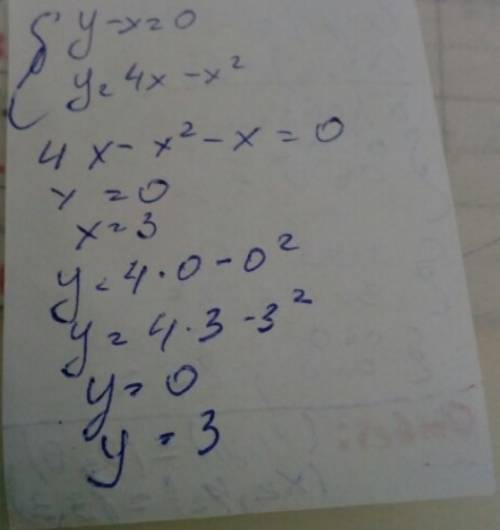 { y-x=0
y=4x-x²
4x-x²-x=0
x=0
x=3
y=4·0-0²
y=4·3-3²
y=0
y=3